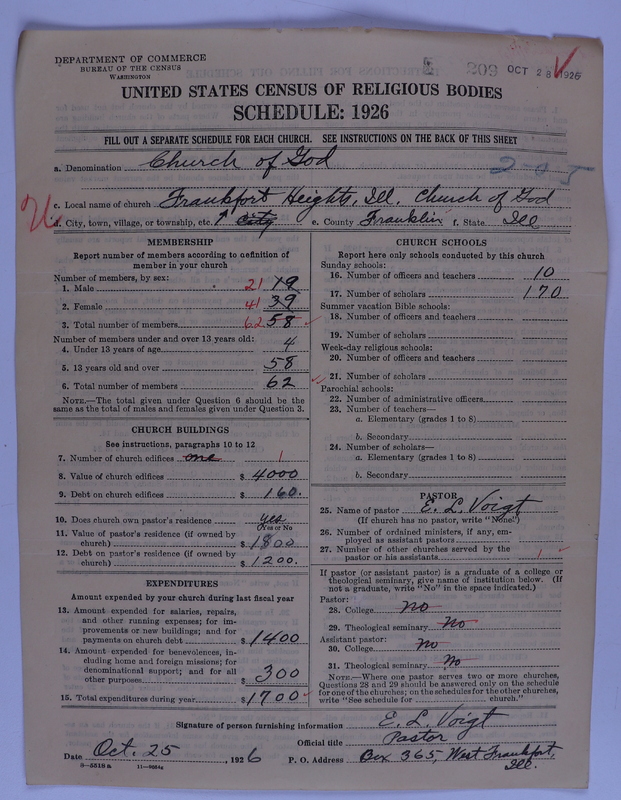 DEPARTMENT OF COMMERCE
BUREAU OF THE CENSUS
WASHINGTON
209 OCT 28 1926
UNITED STATES CENSUS OF RELIGIOUS BODIES
SCHEDULE: 1926
FILL OUT A SEPARATE SCHEDULE FOR EACH CHURCH. SEE INSTRUCTIONS ON THE BACK OF THIS SHEET
a. Denomination Church of God
2-0-5
c. Local name of church Frankfort Heights, Ill. Church of God
d. City, town, village, or township, etc. City e. County Franklin f. State Ill
MEMBERSHIP
Report number of members according to definition of
member in your church
Number of members, by sex:
1. Male 21 19
2. Female 41 39
3. Total number of members 62 58
Number of members under and over 13 years old:
4. Under 13 years of age 4
5. 13 years old and over 58
6. Total number of members 62
NOTE.—The total given under Question 6 should be
the same as the total of males and females given under Question 3.
CHURCH BUILDINGS
See instructions, paragraphs 10 to 12
7. Number of church edifices one 1
8. Value of church edifices $ 4000
9. Debt on church edifices $ 160.
10. Does church own pastor's residence yes
(Yes or No
11. Value of pastor's residence (if owned by
church) $ 1800
12. Debt on pastor's residence (if owned by
church) $ 1200.
EXPENDITURES
Amount expended by your church during last fiscal year
13. Amount expended for salaries, repairs,
and other running expenses; for im-
provements or new buildings; and for
payments on church debt $ 1400
14. Amount expended for benevolences, in-
cluding home and foreign missions; for
denominational support; and for all
other purposes $ 300
15. Total expenditures during year $ 1700
CHURCH SCHOOLS
Report here only schools conducted by this church
Sunday schools:
16. Number of officers and teachers 10
17. Number of scholars 170
Summer vacation Bible schools:
18. Number of officers and teachers
19. Number of scholars
Week-day religious schools:
20. Number of officers and teachers
21. Number of scholars
Parochial schools:
22. Number of administrative officers
23. Number of teachers—
a. Elementary (grades 1 to 8)
b. Secondary
24. Number of scholars—
a. Elementary (grades 1 to 8)
b. Secondary
PASTOR
25. Name of pastor E. L. Voigt
(If church has no pastor, write "None")
26. Number of ordained ministers, if any, em-
ployed as assistant pastors
27. Number of other churches served by the
pastor or his assistants 1
If pastor (or assistant pastor) is a graduate of a college or
theological seminary, give name of institution below. (If
not a graduate, write "No" in the space indicated.)
Pastor:
28. College no
29. Theological seminary No
Assistant pastor:
30. College No
31. Theological seminary No
NOTE.—Where one pastor serves two or more churches,
Questions 28 and 29 should be answered only on the schedule
for one of the churches; on the schedules for the other churches,
write "See schedule for church."
Signature of person furnishing information E. L. Voigt
Official title Pastor
Date Oct. 25, 1926 P. O. Address Box 365, West Frankfort,
Ill.
8—5518a 11—9054a